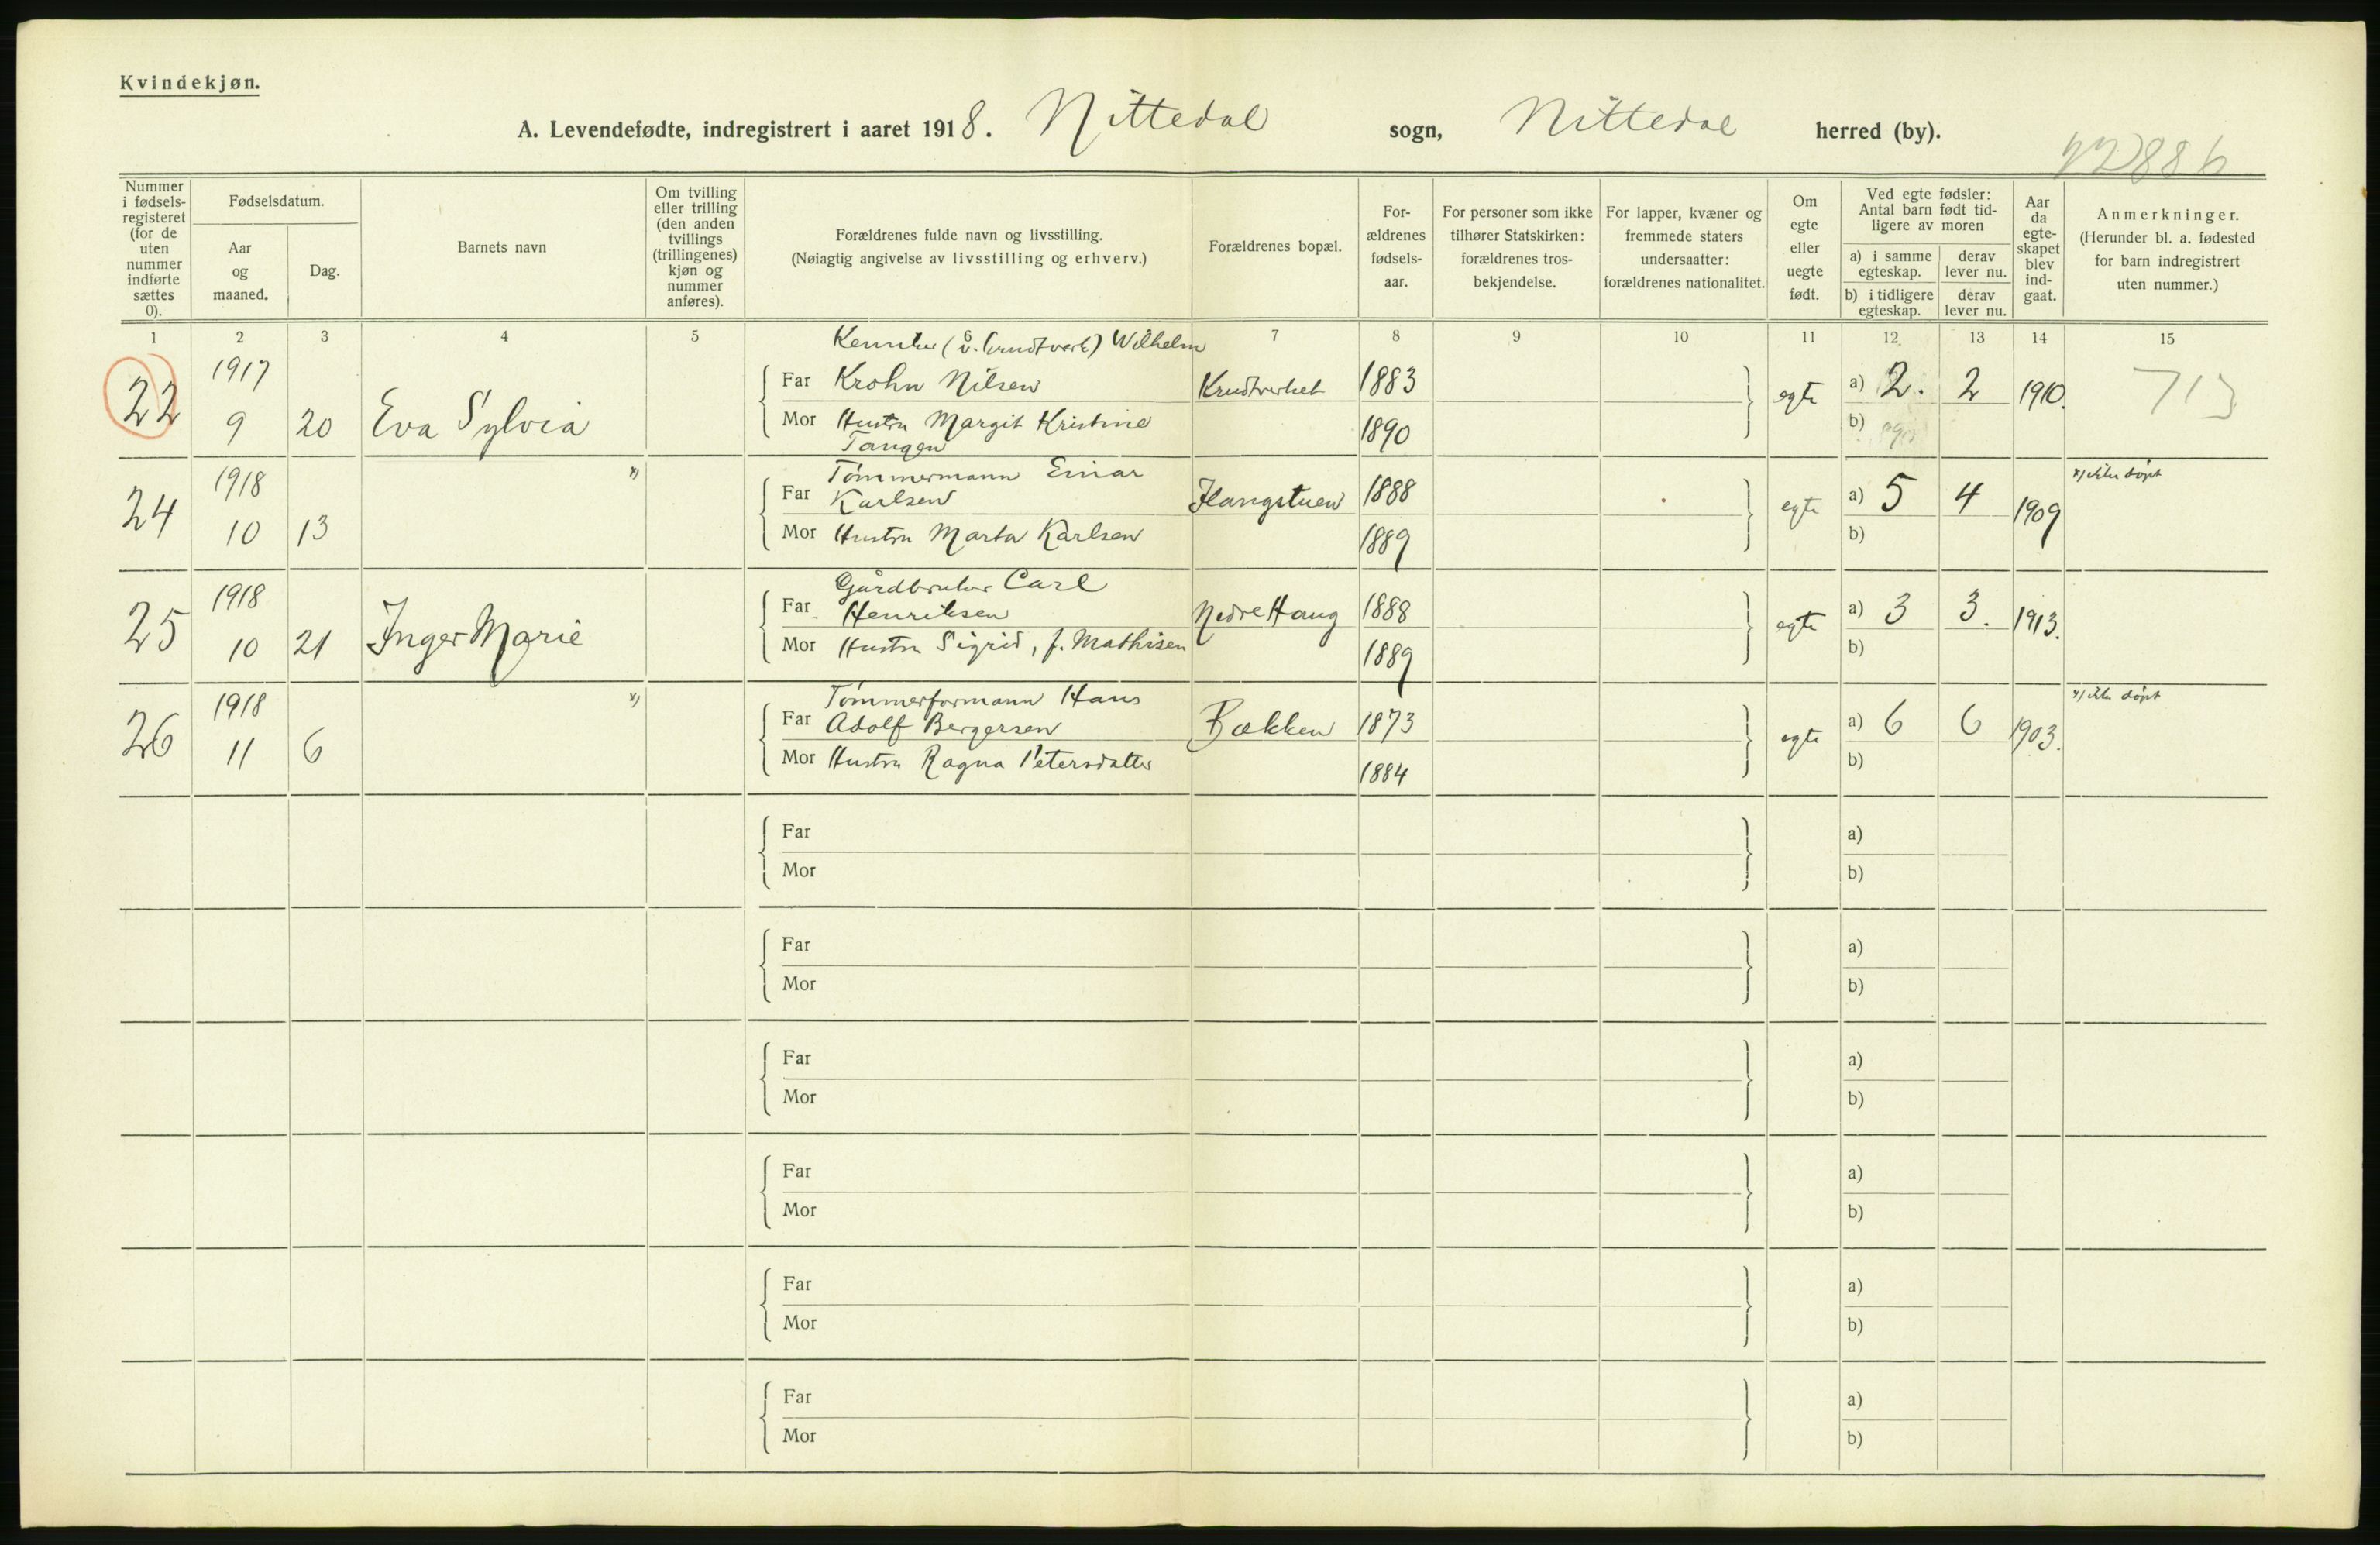 Kvindekjøn.
A. Levendefødte, indregistrert i aaret 1918. Nittedal sogn, Nittedal herred (by).
Nummer i fødsels-registeret (for de uten nummer indførte sættes 0).
Fødselsdatum.
Aar og maaned.
Dag.
Barnets navn
Om tvilling eller trilling (den anden tvillings (trillingenes) kjøn og nummer anføres).
Forældrenes fulde navn og livsstilling.
(Nøiagtig angivelse av livsstilling og erhverv.)
Forældrenes bopæl.
For-ældrenes fødsels-aar.
For personer som ikke tilhører Statskirken: forældrenes tros-bekjendelse.
For lapper, kvæner og fremmede staters undersaatter: forældrenes nationalitet.
Om egte eller uegte født.
Ved egte fødsler: Antal barn født tid-ligere av moren
a) i samme egteskap.
derav lever nu.
b) i tidligere egteskap.
derav lever nu.
Aar da egte-skapet blev ind-gaat.
Anmerkninger.
(Herunder bl. a. fødested for barn indregistrert uten nummer.)
1 2 3 4 5 6 7 8 9 10 11 12 13 14 15
22 1917 9 20 Eva Sylvia
Wilhelm
Far Krohn Nilsen Krudtverket 1883 egte a) 2. 2 1910. 713
Mor Hustru Margit Kristine 1890 b)
Tangen
24 1918 10 13 x)
Tømmermann Einar
Far Karlsen 1888 egte a) 5 4 1909 x) ikke døpt
Mor Hustru Marta Karlsen 1889 b)
25 1918 10 21 Inger Marie
Gårdbruker Carl
Far Henriksen Nedre Haug 1888 egte a) 3 3. 1913.
Mor Hustru Sigrid, f. Mathisen 1889 b)
26 1918 11 6 x)
Tømmerformann Hans
Far Adolf Bergersen Bækken 1873 egte a) 6 6 1903. x) ikke døpt
Mor Hustru Ragna Petersdatter 1884 b)
Far a)
Mor b)
Far a)
Mor b)
Far a)
Mor b)
Far a)
Mor b)
Far a)
Mor b)
Far a)
Mor b)